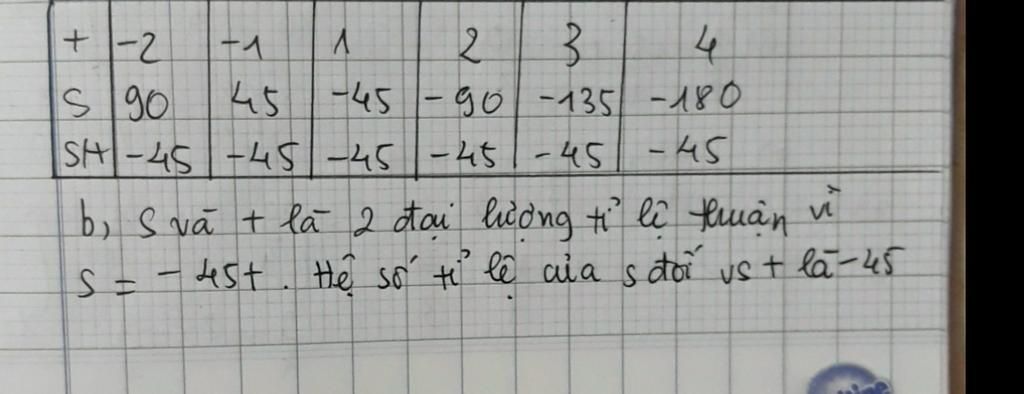 t -2 -1 1 2 3 4
S 90 45 -45 -90 -135 -180
S/t -45 -45 -45 -45 -45 -45
b, S và t là 2 đại lượng tỉ lệ thuận vì
S = -45t. Hệ số tỉ lệ của s đối vs t là -45